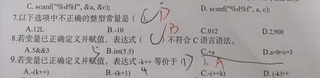 C. scanf("%c%d", &a, &c);	D. scanf("%d%f", a, c);
7.以下选项中不正确的整型常量是（ D ）
A.12L	B.-10	C.012	D.2,900
8.若变量已正确定义并赋值，表达式（ B ）不符合 C 语言语法。
A.5&&3	B.int(5.5)	C.+a	D.a=b=c=3
9.若变量已正确定义并赋值，表达式 -k++ 等价于（ ）。 A
A.-(k++)	B.-(k+1)	C.-(++k)	D.(-k)++